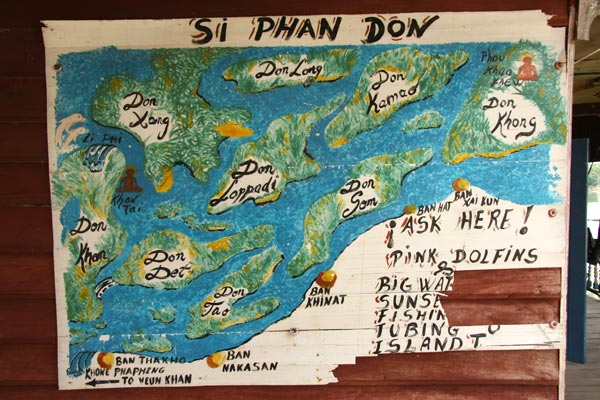 SI PHAN DON
Don Long
Don Kamao
Phou
Khao
KAEW
Don Xang
Don Khong
Li Phi
Khon
Tai
Don Loppadi
Don Som
BAN HAT
BAN
XAI KUN
¡ASK HERE!
PINK DOLFINS
Don Khon
Don Det
Don Tao
BAN
KHINAT
&
BIG WAT
SUNSE
FISHIN
TUBING TO
ISLAND T
BAN THAKHO
BAN
NAKASAN
KHONE PHAPHENG
TO VEUN KHAN